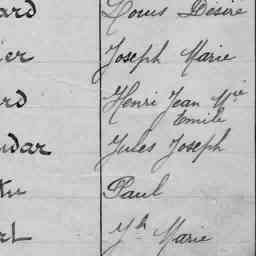 ard Louis Désiré
ier Joseph Marie
ard Henri Jean Mie
Emile
udar Jules Joseph
Paul
Jh Marie